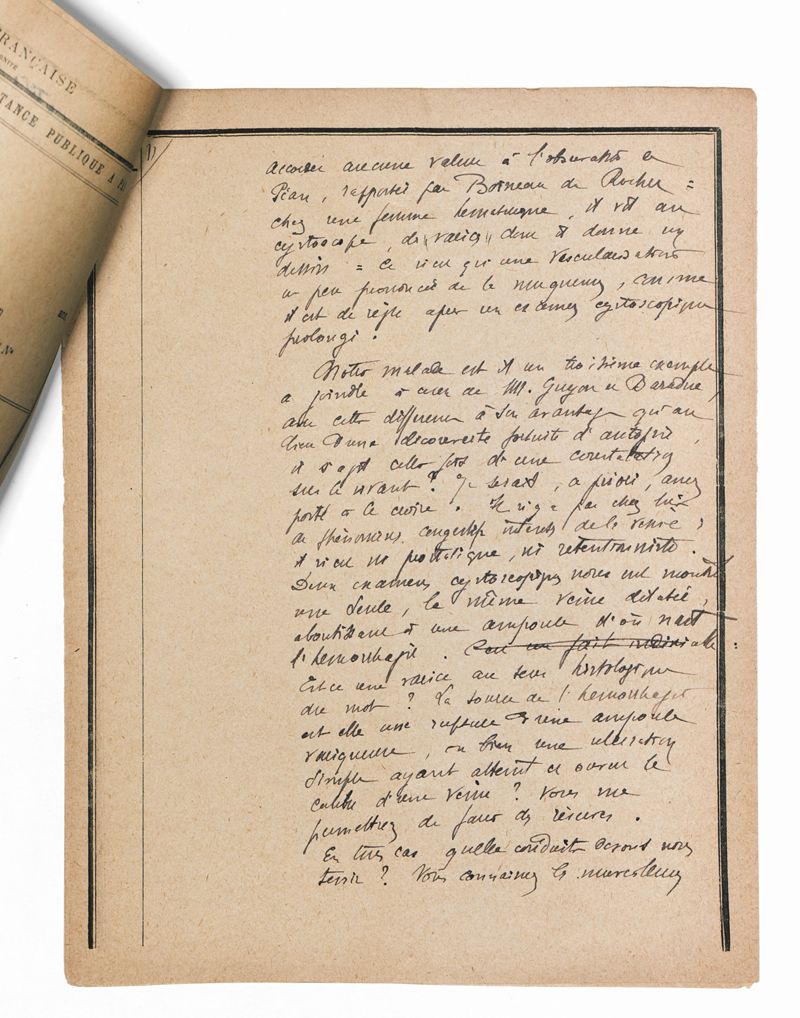 FRANÇAISE
TANCE PUBLIQUE A
11
accorder aucune valeur à l'observation de
Péan, rapportée par Boisneau du Rocher =
chez une femme hematurique, il vit au
cystoscope, des "varices" dont il donne un
dessin = ce n'est qu'une vascularisation
un peu prononcée de la muqueuse, comme
il est de règle apres un examen cystoscopique
prolongé.
Notre malade est il un troisième exemple
a joindre à ceux de MM. Guyon et
avec cette difference à son avantage qu'au
lieu d'une découverte fortuite d'autopsie,
il s'agit cette fois d'une constatation
sur le vivant ? Je serais, a priori, assez
porté à le croire. Il n'y a pas chez lui
de phénomènes congestifs intenses de la vessie ;
il n'est ni prostatique, ni retentionniste.
Deux examens cystoscopiques nous ont montré
une seule, la même veine dilatée,
aboutissant à une ampoule d'où nait
l'hemorrhagie. C'est un fait indéniable :
Est ce une varice au sens histologique
du mot ? La source de l'hemorrhagie
est elle une rupture d'une ampoule
variqueuse, ou bien une ulceration
simple ayant atteint et ouvert le
calibre d'une veine ? Vous me
permettrez de faire des réserves.
En tous cas quelle conduite devons nous
tenir ? Vous connaissez le merveilleux